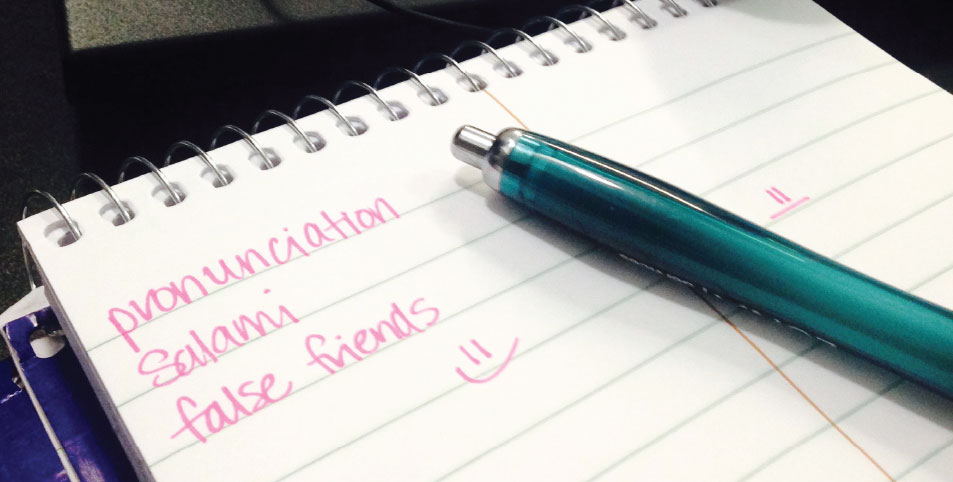 pronunciation
Salami
false friends